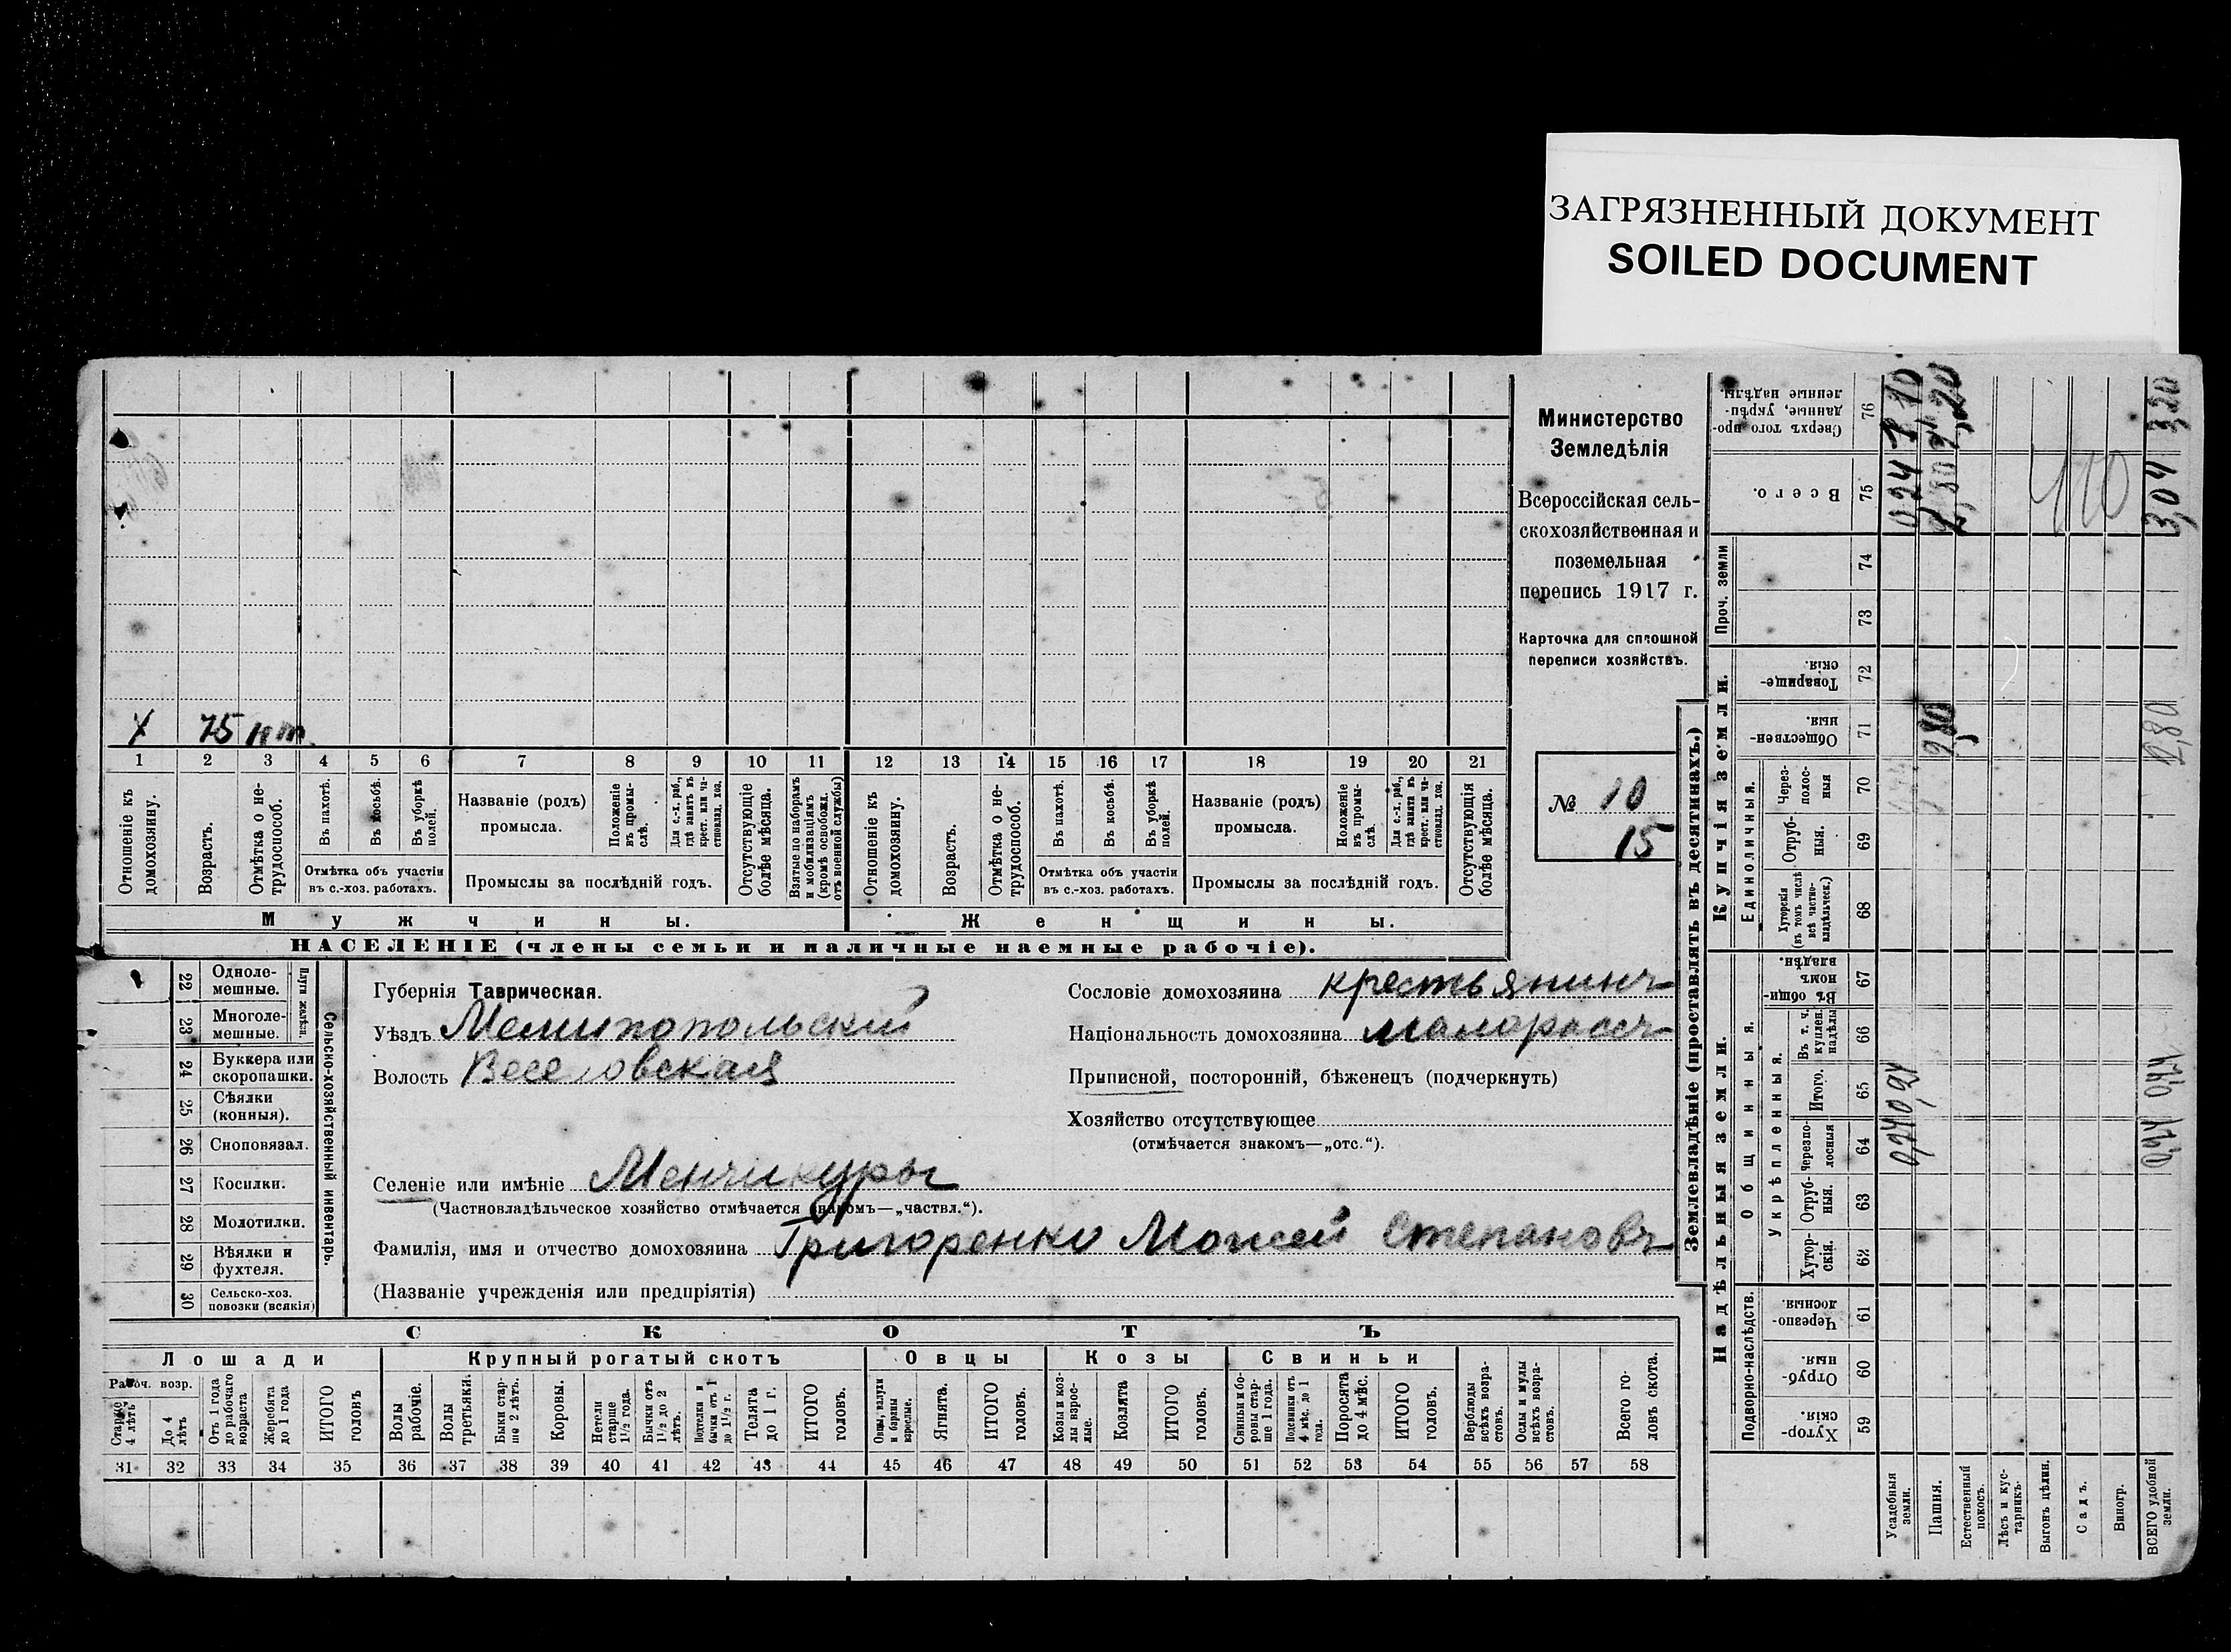 ЗАГРЯЗНЕННЫЙ ДОКУМЕНТ
SOILED DOCUMENT
Министерство
Земледѣлія
Всероссійская сель-
скохозяйственная и
поземельная
перепись 1917 г.
Карточка для сплошной
переписи хозяйствъ.
№ 10
15
X 75 нт
1 2 3 4 5 6 7 8 9 10 11 12 13 14 15 16 17 18 19 20 21
Отношеніе къ домохозяину.
Возрастъ.
Отмѣтка о не-трудоспособ.
Въ пахотѣ.
Въ косьбѣ.
Въ уборкѣ полей.
Отмѣтка объ участіи
въ с.-хоз. работахъ.
Названіе (родъ)
промысла.
Положеніе въ промы-слѣ.
Для с.-х. раб., гдѣ занятъ въ крест. или ча-стновлад. хоз.
Промыслы за послѣдній годъ.
Отсутствующіе болѣе мѣсяца.
Взятые по наборамъ и мобилизаціямъ (кромѣ освобожд. отъ военной службы)
Отношеніе къ домохозяину.
Возрастъ.
Отмѣтка о не-трудоспособ.
Въ пахотѣ.
Въ косьбѣ.
Въ уборкѣ полей.
Отмѣтка объ участіи
въ с.-хоз. работахъ.
Названіе (родъ)
промысла.
Положеніе въ промы-слѣ.
Для с.-х. раб., гдѣ заняти въ крест. или ча-стновлад. хоз.
Промыслы за послѣдній годъ.
Отсутствующія болѣе мѣсяца.
Мужчины.
Женщины.
НАСЕЛЕНІЕ (члены семьи и наличные наемные рабочіе).
22 Одноле-мешные.
23 Многоле-мешные.
Плуги желѣзн.
24 Буккера или скоропашки.
25 Сѣялки (конныя).
26 Сноповязал.
27 Косилки.
28 Молотилки.
29 Вѣялки и фухтеля.
30 Сельско-хоз. повозки (всякія)
Сельско-хозяйственный инвентарь.
Губернія Таврическая.
Уѣздъ Мелитопольскій
Волость Веселовская
Сословіе домохозяина крестьянинъ
Національность домохозяина малороссъ
Приписной, посторонній, бѣженецъ (подчеркнуть)
Хозяйство отсутствующее
(отмѣчается знакомъ—„отс.“).
Селеніе или имѣніе Менчикуры
(Частновладѣльческое хозяйство отмѣчается знакомъ—„частвл.“).
Фамилія, имя и отчество домохозяина Григоренко Моисей Степановъ
(Названіе учрежденія или предпріятія)
СКОТЪ
Лошади
Крупный рогатый скотъ
Овцы
Козы
Свиньи
Рабоч. возр.
Старше 4 лѣтъ
До 4 лѣтъ
Отъ 1 года до рабочаго возраста
Жеребята до 1 года
ИТОГО головъ
Волы рабочіе.
Волы третьяки.
Быки стар-ше 2 лѣтъ.
Коровы.
Нетели старше 1½ года.
Бычки отъ 1½ до 2 лѣтъ.
Подтелки и бычки отъ 1 до 1½ г.
Телята до 1 г.
ИТОГО головъ.
Овцы, валухи и бараны взрослые.
Ягнята.
ИТОГО головъ.
Козы и коз-лы взрос-лые.
Козлята
ИТОГО головъ.
Свиньи и бо-ровы стар-ше 1 года.
Подсвинки отъ 4 мѣс. до 1 года.
Поросята до 4 мѣс.
ИТОГО головъ.
Верблюды всѣхъ возра-стовъ.
Ослы и мулы всѣхъ возра-стовъ.
Всего го-ловъ скота.
31 32 33 34 35 36 37 38 39 40 41 42 43 44 45 46 47 48 49 50 51 52 53 54 55 56 57 58
Землевладѣніе (проставлять въ десятинахъ.)
Надѣльныя земли.
Купчія земли.
Проч. земли
Подворно-наслѣдств.
Общинныя.
Укрѣпленныя.
Единоличныя.
Хутор-скія. 59
Отруб-ныя. 60
Черезпо-лосныя 61
Хутор-скія. 62
Отруб-ныя. 63
Черезпо-лосныя 64
Итого. 65
Въ т. ч. куплен. надѣлы 66
Въ общи-номъ владѣн. 67
Хуторскія (въ томъ числѣ всѣ частно-владѣльческ.) 68
Отруб-ныя. 69
Черезпо-лос-ныя 70
Обществен-ныя. 71
Товарище-скія. 72
73
74
Всего. 75
Сверхъ того про-данные, укрѣп-ленные надѣлы. 76
Усадебныя земли. 0,24 0,24
Пашня. 2,80
Естественный покосъ.
Лѣсъ и кус-тарникъ.
Выгонъ цѣлин.
Садъ.
Виногр.
ВСЕГО удобной земли. 2,80 3,04 3,20